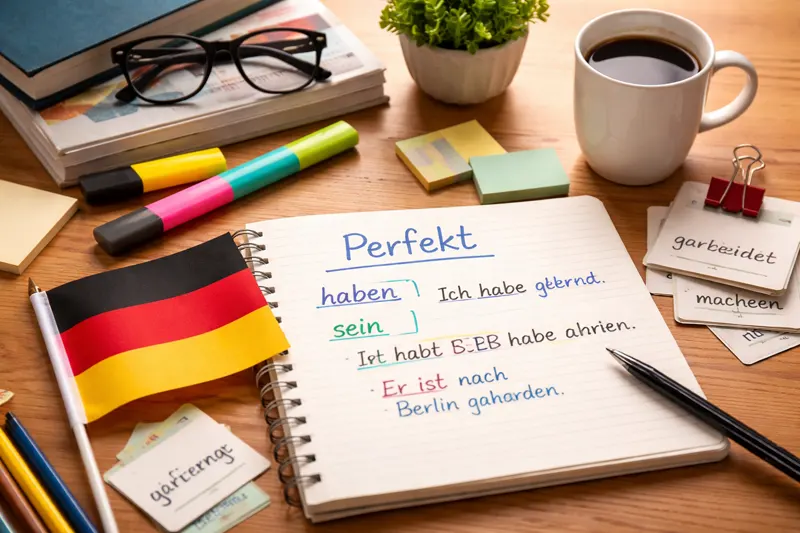 Perfekt
haben
Ich habe gteernd.
sein
Ist habt B.EB habe ahrien.
Er ist nach
Berlin gaharden.
garbeidet
macheen